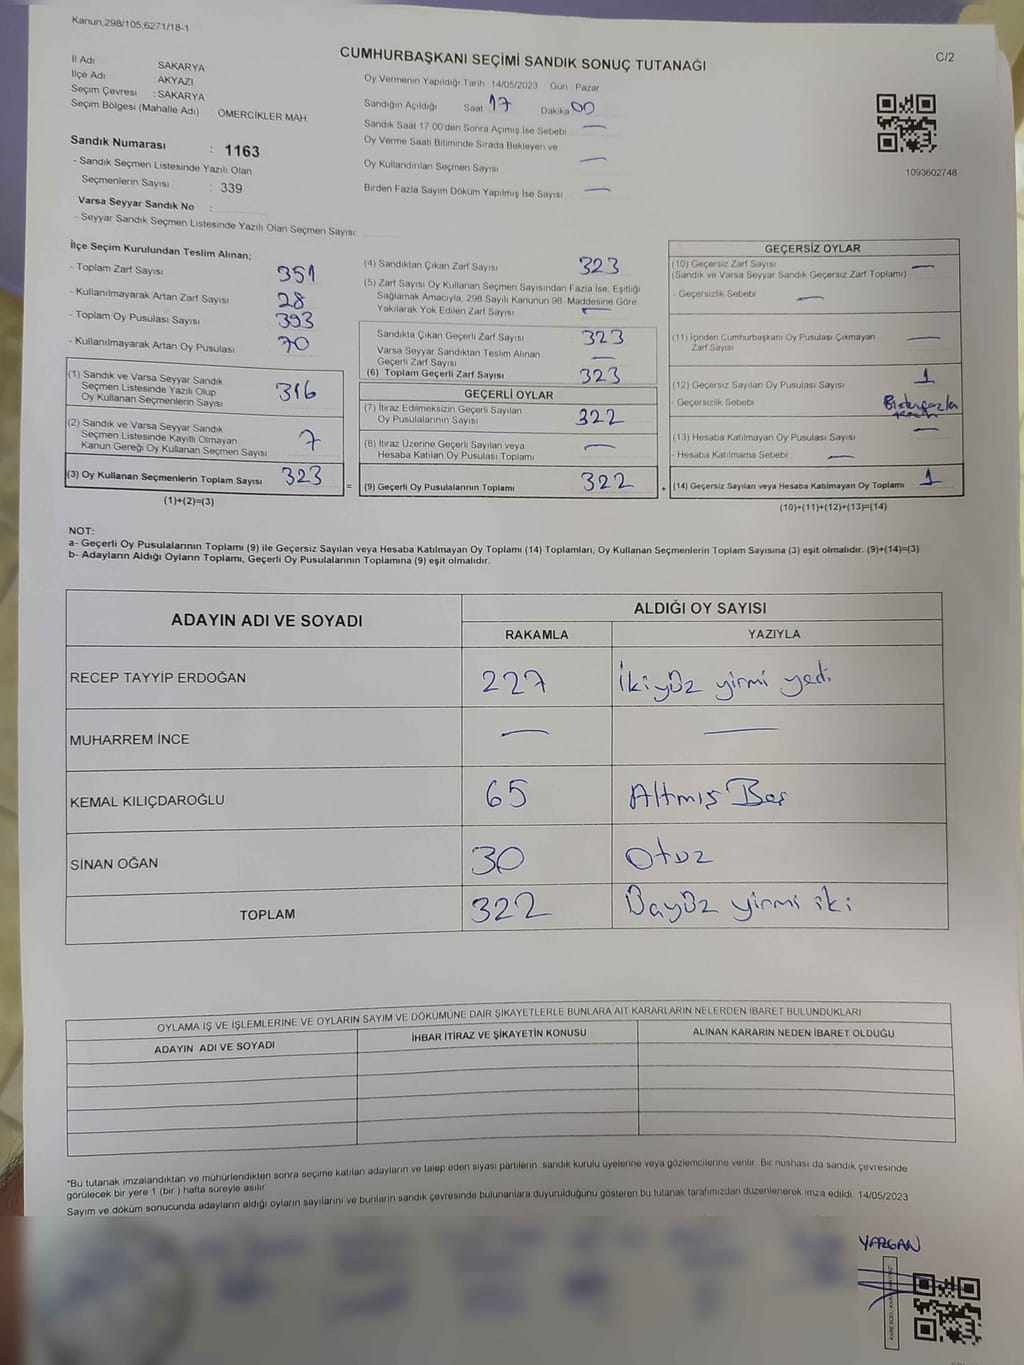 Kanun;298/105,6271/18-1
CUMHURBAŞKANI SEÇİMİ SANDIK SONUÇ TUTANAĞI
C/2
İl Adı SAKARYA
İlçe Adı AKYAZI
Seçim Çevresi : SAKARYA
Seçim Bölgesi (Mahalle Adı) ÖMERCİKLER MAH.
Sandık Numarası : 1163
- Sandık Seçmen Listesinde Yazılı Olan
Seçmenlerin Sayısı : 339
Varsa Seyyar Sandık No :
- Seyyar Sandık Seçmen Listesinde Yazılı Olan Seçmen Sayısı:
Oy Vermenin Yapıldığı Tarih 14/05/2023 Gün Pazar
Sandığın Açıldığı Saat 17 Dakika 00
Sandık Saat 17:00'den Sonra Açımış İse Sebebi —
Oy Verme Saati Bitiminde Sırada Bekleyen ve
Oy Kullandırılan Seçmen Sayısı —
Birden Fazla Sayım Döküm Yapılmış İse Sayısı —
1093602748
İlçe Seçim Kurulundan Teslim Alınan;
- Toplam Zarf Sayısı 351
- Kullanılmayarak Artan Zarf Sayısı 28
- Toplam Oy Pusulası Sayısı 393
- Kullanılmayarak Artan Oy Pusulası 70
(1) Sandık ve Varsa Seyyar Sandık
Seçmen Listesinde Yazılı Olup
Oy Kullanan Seçmenlerin Sayısı 316
(2) Sandık ve Varsa Seyyar Sandık
Seçmen Listesinde Kayıtlı Olmayan
Kanun Gereği Oy Kullanan Seçmen Sayısı 7
(3) Oy Kullanan Seçmenlerin Toplam Sayısı 323
(1)+(2)=(3)
=
(4) Sandıktan Çıkan Zarf Sayısı 323
(5) Zarf Sayısı Oy Kullanan Seçmen Sayısından Fazla İse, Eşitliği
Sağlamak Amacıyla, 298 Sayılı Kanunun 98. Maddesine Göre
Yakılarak Yok Edilen Zarf Sayısı —
Sandıkta Çıkan Geçerli Zarf Sayısı 323
Varsa Seyyar Sandıktan Teslim Alınan
Geçerli Zarf Sayısı —
(6) Toplam Geçerli Zarf Sayısı 323
GEÇERLİ OYLAR
(7) İtiraz Edilmeksizin Geçerli Sayılan
Oy Pusulasının Sayısı 322
(8) İtiraz Üzerine Geçerli Sayılan veya
Hesaba Katılan Oy Pusulası Toplamı —
(9) Geçerli Oy Pusulalarının Toplamı 322
+
GEÇERSİZ OYLAR
(10) Geçersiz Zarf Sayısı —
(Sandık ve Varsa Seyyar Sandık Geçersiz Zarf Toplamı)
- Geçersizlik Sebebi —
(11) İçinden Cumhurbaşkanı Oy Pusulası Çıkmayan
Zarf Sayısı —
(12) Geçersiz Sayılan Oy Pusulası Sayısı 1
- Geçersizlik Sebebi Birden fazla
(13) Hesaba Katılmayan Oy Pusulası Sayısı —
- Hesaba Katılmama Sebebi —
(14) Geçersiz Sayılan veya Hesaba Katılmayan Oy Toplamı 1
(10)+(11)+(12)+(13)=(14)
NOT:
a- Geçerli Oy Pusulalarının Toplamı (9) ile Geçersiz Sayılan veya Hesaba Katılmayan Oy Toplamı (14) Toplamları, Oy Kullanan Seçmenlerin Toplam Sayısına (3) eşit olmalıdır. (9)+(14)=(3)
b- Adayların Aldığı Oyların Toplamı, Geçerli Oy Pusulalarının Toplamına (9) eşit olmalıdır.
ADAYIN ADI VE SOYADI
ALDIĞI OY SAYISI
RAKAMLA YAZIYLA
RECEP TAYYİP ERDOĞAN 227 İkiyüz yirmi yedi
MUHARREM İNCE — —
KEMAL KILIÇDAROĞLU 65 Altmış Beş
SİNAN OĞAN 30 Otuz
TOPLAM 322 Üçyüz yirmi iki
OYLAMA İŞ VE İŞLEMLERİNE VE OYLARIN SAYIM VE DÖKÜMÜNE DAİR ŞİKAYETLERLE BUNLARA AİT KARARLARIN NELERDEN İBARET BULUNDUKLARI
ADAYIN ADI VE SOYADI İHBAR İTİRAZ VE ŞİKAYETİN KONUSU ALINAN KARARIN NEDEN İBARET OLDUĞU
*Bu tutanak imzalandıktan ve mühürlendikten sonra seçime katılan adayların ve talep eden siyasi partilerin sandık kurulu üyelerine veya gözlemcilerine verilir. Bir nüshası da sandık çevresinde
görülecek bir yere 1 (bir ) hafta süreyle asılır.
Sayım ve döküm sonucunda adayların aldığı oyların sayılarını ve bunların sandık çevresinde bulunanlara duyurulduğunu gösteren bu tutanak tarafımızdan düzenlenerek imza edildi. 14/05/2023